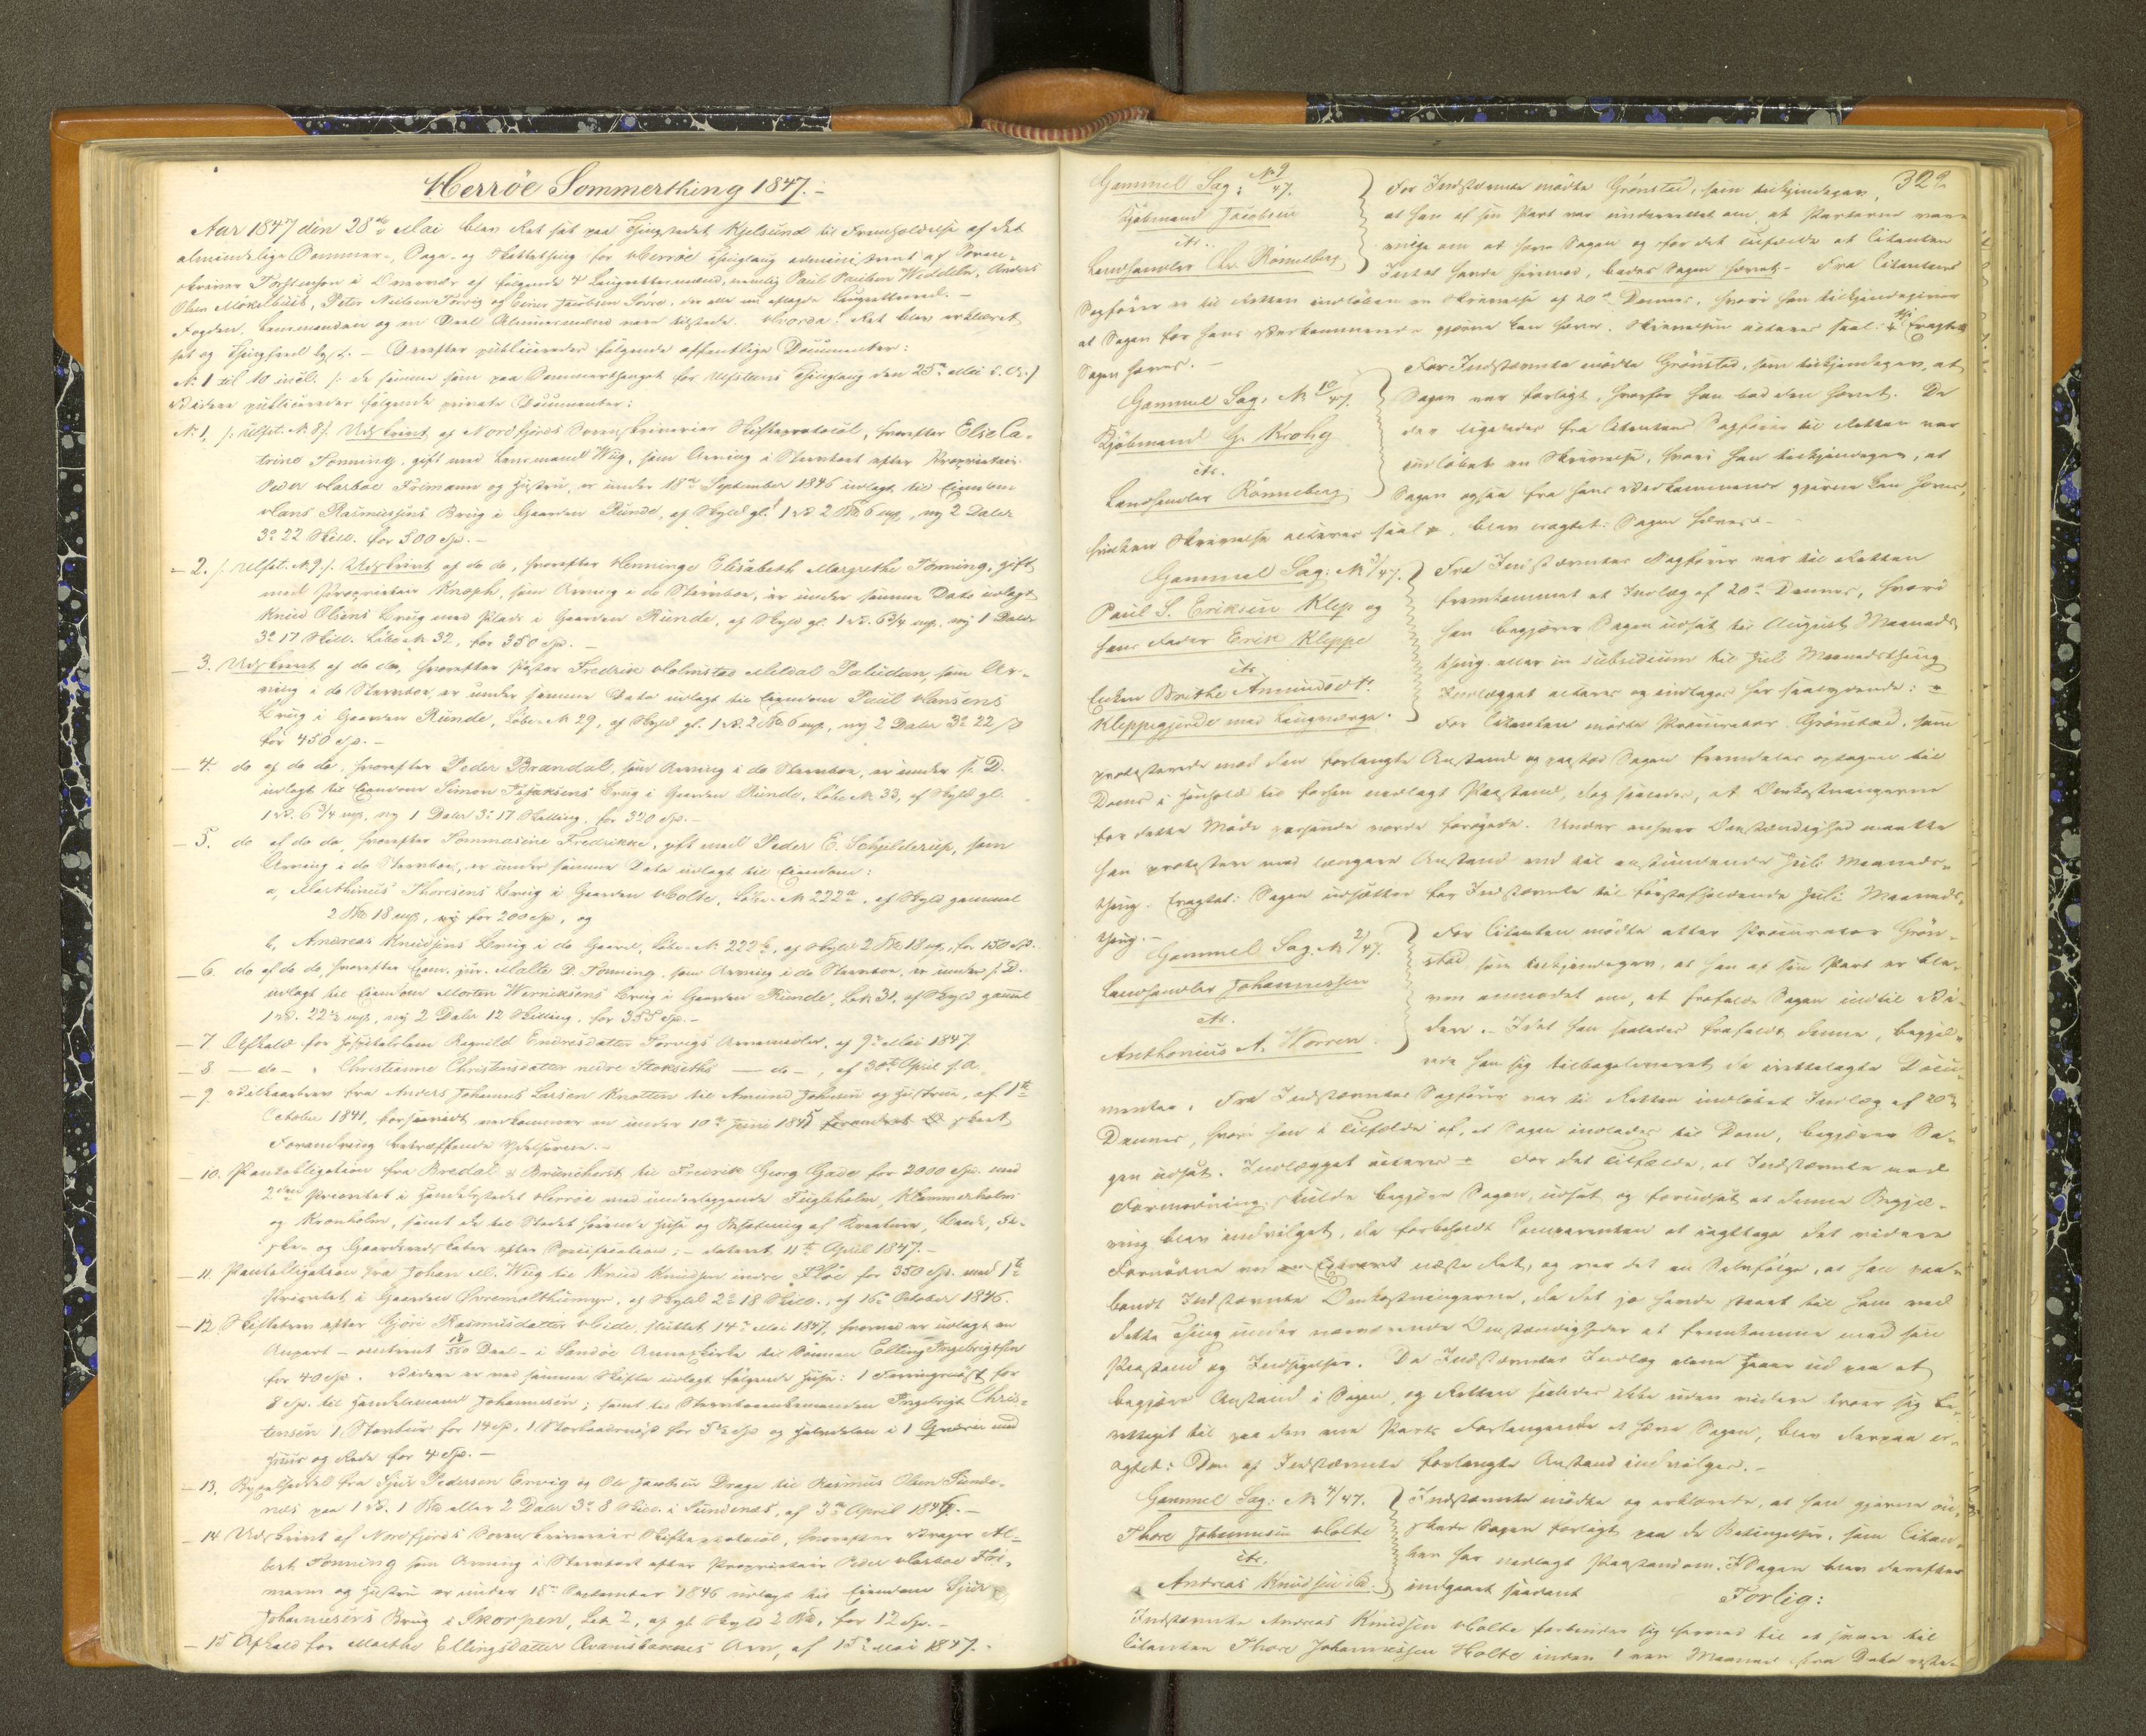 Herröe Sommerthing 1847.-
Aar 1847 den 28de Mai blev Ret sat paa Thingstedet Kjelsund til Fremholdelse af det
almindelige Sommer-, Sage- og Skattething for Herröe Thinglaug administreret af Soren-
skriver Thorstensen i Overvær af følgende 4 Laugrettesmænd, nemlig Paul Paulsen Widdebø, Anders
Olsen Mökelbust, Peter Nielsen Torvig og Einer Jacobsen Sørve, der alle nu aflagde Laugrettesed.-
Fogden, Lensmanden og en Deel Almuesmænd vare tilstede. Hvorda! Ret blev erklæret
sat og Thingfred lyst. - Derefter publiceredes følgende offentlige Documenter:
No 1 til 10 incl. /: de samme som paa Sommerthinget for Ulfstens Thinglaug den 25de Mai d. A. :/
Videre publiceredes følgende private Documenter:
No 1, /: Ulfst. No 8 :/. Udskrivt af Nordfjords Sorenskriveries Skifteprotocol, hvorefter Elise Ca-
trine Tønning, gift med Lensmand Wiig, som Arving i Sterboet efter Proprietair
Peder Harboe Frimann og Hustru, er under 18de September 1846 udlagt til Eiendom
Hans Rasmussens Brug i Gaarden Runde, af Skyld gl. 1 V. 2 Pd 6 mk, ny 2 Daler
3 ort 22 Skill. for 500 Spd.-
- 2. /: Ulfst. No 9 :/. Udskrivt af do do, hvorefter Henninge Elisabeth Margrethe Tønning, gift
med Proprietair Knoph, som Arving i do Sterboe, er under samme Dato udlagt
Knud Olsens Brug med Plads i Gaarden Runde, af Skyld gl. 1 V. 6 3/4 mk, ny 1 Daler
3 ort 17 Skill. Løbe No 32, for 350 Spd.-
- 3. Udskrivt af do do, hvorefter Pastor Fredrik Holmsted Meldal Paludan, som Ar-
ving i do Sterboe, er under samme Dato udlagt til Eiendom Paul Hansens
Brug i Gaarden Runde, Løbe No 29, af Skyld gl. 1 V. 2 Pd 6 mk, ny 2 Daler 3 ort 22 ß
for 450 Spd.-
- 4. do af do do, hvorefter Peder Brandal, som Arving i do Sterboe, er under s. D.
udlagt til Eiendom Simon Isaksens Brug i Gaarden Runde, Løbe No 33, af Skyld gl.
1 V. 6 3/4 mk, ny 1 Daler 3 ort 17 Skilling, for 320 Spd.-
- 5. do af do do, hvorefter Tommasine Fredrikke, gift med Peder E. Schjelderup, som
Arving i do Sterboe, er under samme Dato udlagt til Eiendom:
a, Marthinus Thoresens Brug i Gaarden Holte, Løbe No 222a, af Skyld gammel
2 Pd 18 mk, ny for 200 Spd, og
b, Andreas Knudsens Brug i do Gaard, Løbe No 222b, af Skyld 2 Pd 18 mk, for 150 Spd.
- 6. do af do do, hvorefter Exam. jur. Malte D. Tønning som Arving i do Sterboe, er under s. D.
udlagt til Eiendom Morten Werniksens Brug i Gaarden Runde, Lb. 31, af Skyld gammel
1 V. 22 1/2 mk, ny 2 Daler 12 Skilling, for 355 Spd.-
- 7 Afkald for Ragnild Endresdatter Torvigs Arvemidler, af 9de Mai 1847.
- 8 - do - " Christianne Christensdatter nedre Stokseths - do -, af 30te April s. A.
- 9. Vilkaarsbrev fra Anders Johannes Larsen Knotten til Amund Johnsen og Hustrue, af 1ste
October 1841, forsaavidt vedkommer en under 10de Juni 1845 skeet
Forandring betræffende Ydelserne.-
- 10. Pantobligation fra Bredal & Brunchorst til Fredrik Georg Gade for 2000 Spd. med
2den Prioritet i Handelsstedet Herröe med underliggende Fugleholm, Klemmerholm
og Kronholm, samt de til Stedet hørende Huse og Besætning af Kreature, Baade, Fi-
ske- og Gaardsredskaber efter Specification; - dateret 11te April 1847.-
- 11. Pantobligation fra Johan M. Wiig til Knud Knudsen indre Fløe for 350 Spd. med 1ste
Prioritet i Gaarden Øvremolthumyr, af Skyld 2 ort 18 Skill., af 16de October 1846.
- 12 Skiftebrev efter Gjøri Rasmusdatter Hide, sluttet 14de Mai 1847, hvorved er udlagt en
Anpart - omtrent Deel - i Sandøe Annexkirke til Sønnen Elling Ingebrigtsen
for 40 Spd. Videre er ved samme Skifte udlagt følgende Huse: 1 Færingsnøst for
8 Spd. til Handelsmand Johannesen; samt til Sterboenkemanden Ingebrigt Chris-
tensen 1 Stabur for 14 Spd, 1 Storbaadnøst for 5 1/2 Spd og Halvdelen i 1 Qværn med
Huus og Rede for 4 Spd.-
- 13. Bygselseddel fra Sjur Pedersen Ervig og Ole Jacobsen Drage til Rasmus Olsen Sunde-
næs paa 1 V. 1 Pd eller 2 Daler 3 ort 8 Skill. i Sundenæs, af 3de April 1846.-
- 14 Udskrivt af Nordfjords Sorenskriveries Skifteprotocol, hvorefter Brager Al-
bert Tønning som Arving i Sterboet efter Proprietair Peder Harboe Fri-
mann og Hustru er under 18de September 1846 udlagt til Eiendom Sjur
Johannesens Brug i Skorpen, Lb. 2, af gl. Skyld 2 Pd, for 12 Spd.-
- 15 Afkald for Marthe Ellingsdatter Qvamsbakkes Arv, af 15de Mai 1847.-
322
Gammel Sag: No 9/47.
Kjøbmand Jacobsen
ctr.
Landhandler Chr. Rønneberg
For Indstævnte mødte Grønstad, som tilkjendegav,
at han af sin Part var underrettet om, at Parterne vare
enige om at hæve Sagen og for det Tilfælde at Citanten
Intet havde herimod, bades Sagen hævet. - Fra Citantens
Sagfører er til Retten indløben en Skrivelse af 20de Dennes, hvori han tilkjendegiver
at Sagen for hans Vedkommende gjerne kan hæves. Skrivelsen acteres saal: Eragtet
Sagen hæves.-
Gammel Sag. No 10/47.
Kjøbmand G. Krohg
ctr.
Landhandler Rønneberg
For Indstævnte mødte Grønstad, som tilkjendegav, at
Sagen var forligt, hvorfor han bad den hævet. Da
der ligeledes fra Citantens Sagfører til Retten var
indløbet en Skrivelse, hvori han tilkjendegav, at
Sagen ogsaa fra hans Vedkommende gjerne kan hæves,
hvilken Skrivelse acteres saal, blev eragtet: Sagen hæves.-
Gammel Sag: No 1/47.
Paul S. Eriksen Klep og
hans Fader Erik Kleppe
ctr.
Enken Brithe Amundsdtr.
Kleppegjerde med Laugværge.
Fra Indstævntes Sagfører var til Retten
fremkommet et Indlæg af 20de Dennes, hvori
han begjærer Sagen udsat til August Maaneds
Thing eller in subsidium til Juli Maanedsthing
Indlægget acteres og indtages her saalydende:
For Citanten mødte Procurator Grønstad, som
protesterede mod den forlangte Anstand og paastod Sagen fremdeles optagen til
Doms i Henhold til forhen nedlagt Paastand, dog saaledes, at Omkostningerne
for dette Møde passende vorde forøgede. Under enhver Omstændighed maatte
han protestere mod længere Anstand end til anstundende Juli Maaneds-
thing. Eragtet: Sagen udsættes for Indstævnte til førstafholdende Juli Maaneds-
thing.-
Gammel Sag. No 2/47.
Landhandler Johannessen
ctr.
Anthonius A. Worren
For Citanten mødte atter Procurator Grøn-
stad som tilkjendegav, at han af sin Part er ble-
ven anmodet om, at frafalde Sagen indtil Vi-
dere. - Idet han saaledes frafaldt denne, begjæ-
rede han sig tilbageleveret de irettelagte Docu-
menter. Fra Indstævntes Sagfører var til Retten indløbet Indlæg af 20de
Dennes, hvori han i Tilfælde af, at Sagen indlades til Dom, begjærer Sa-
gen udsat. Indlægget acteres. For det Tilfælde, at Indstævnte mod
Formodning skulde begjære Sagen udsat og forudsat at denne Begjæ-
ring blev indvilget, da forbeholdt Comparenten at iagttage det videre
Fornødne ved næste Ret, og var det en Selvfølge, at han paa-
bandt Indstævnte Omkostningerne, da det jo havde staaet til ham ved
dette Thing under nærværende Omstændigheder at fremkomme med sin
Paastand og Indsigelser. Da Indstævntes Indlæg alene gaaer ud paa at
begjære Anstand i Sagen, og Retten saaledes ikke uden videre troer sig be-
rettiget til paa den ene Parts Forlangende at hæve Sagen, blev derpaa er-
agtet: Den af Indstævnte forlangte Anstand indvilges.-
Gammel Sag: No 4/47.
Thore Johannesen Holte
ctr.
Andreas Knudsen ibd.
Indstævnte mødte og erklærede, at han gjerne øn-
skede Sagen forligt paa de Betingelser, som Citan-
ten har nedlagt Paastand om. I Sagen blev derefter
indgaaet saadant
Forlig:
Indstævnte Andreas Knudsen Holte forbinder sig herved til at svare til
Citanten Thore Johannessen Holte inden 1 een Maaned fra Dato